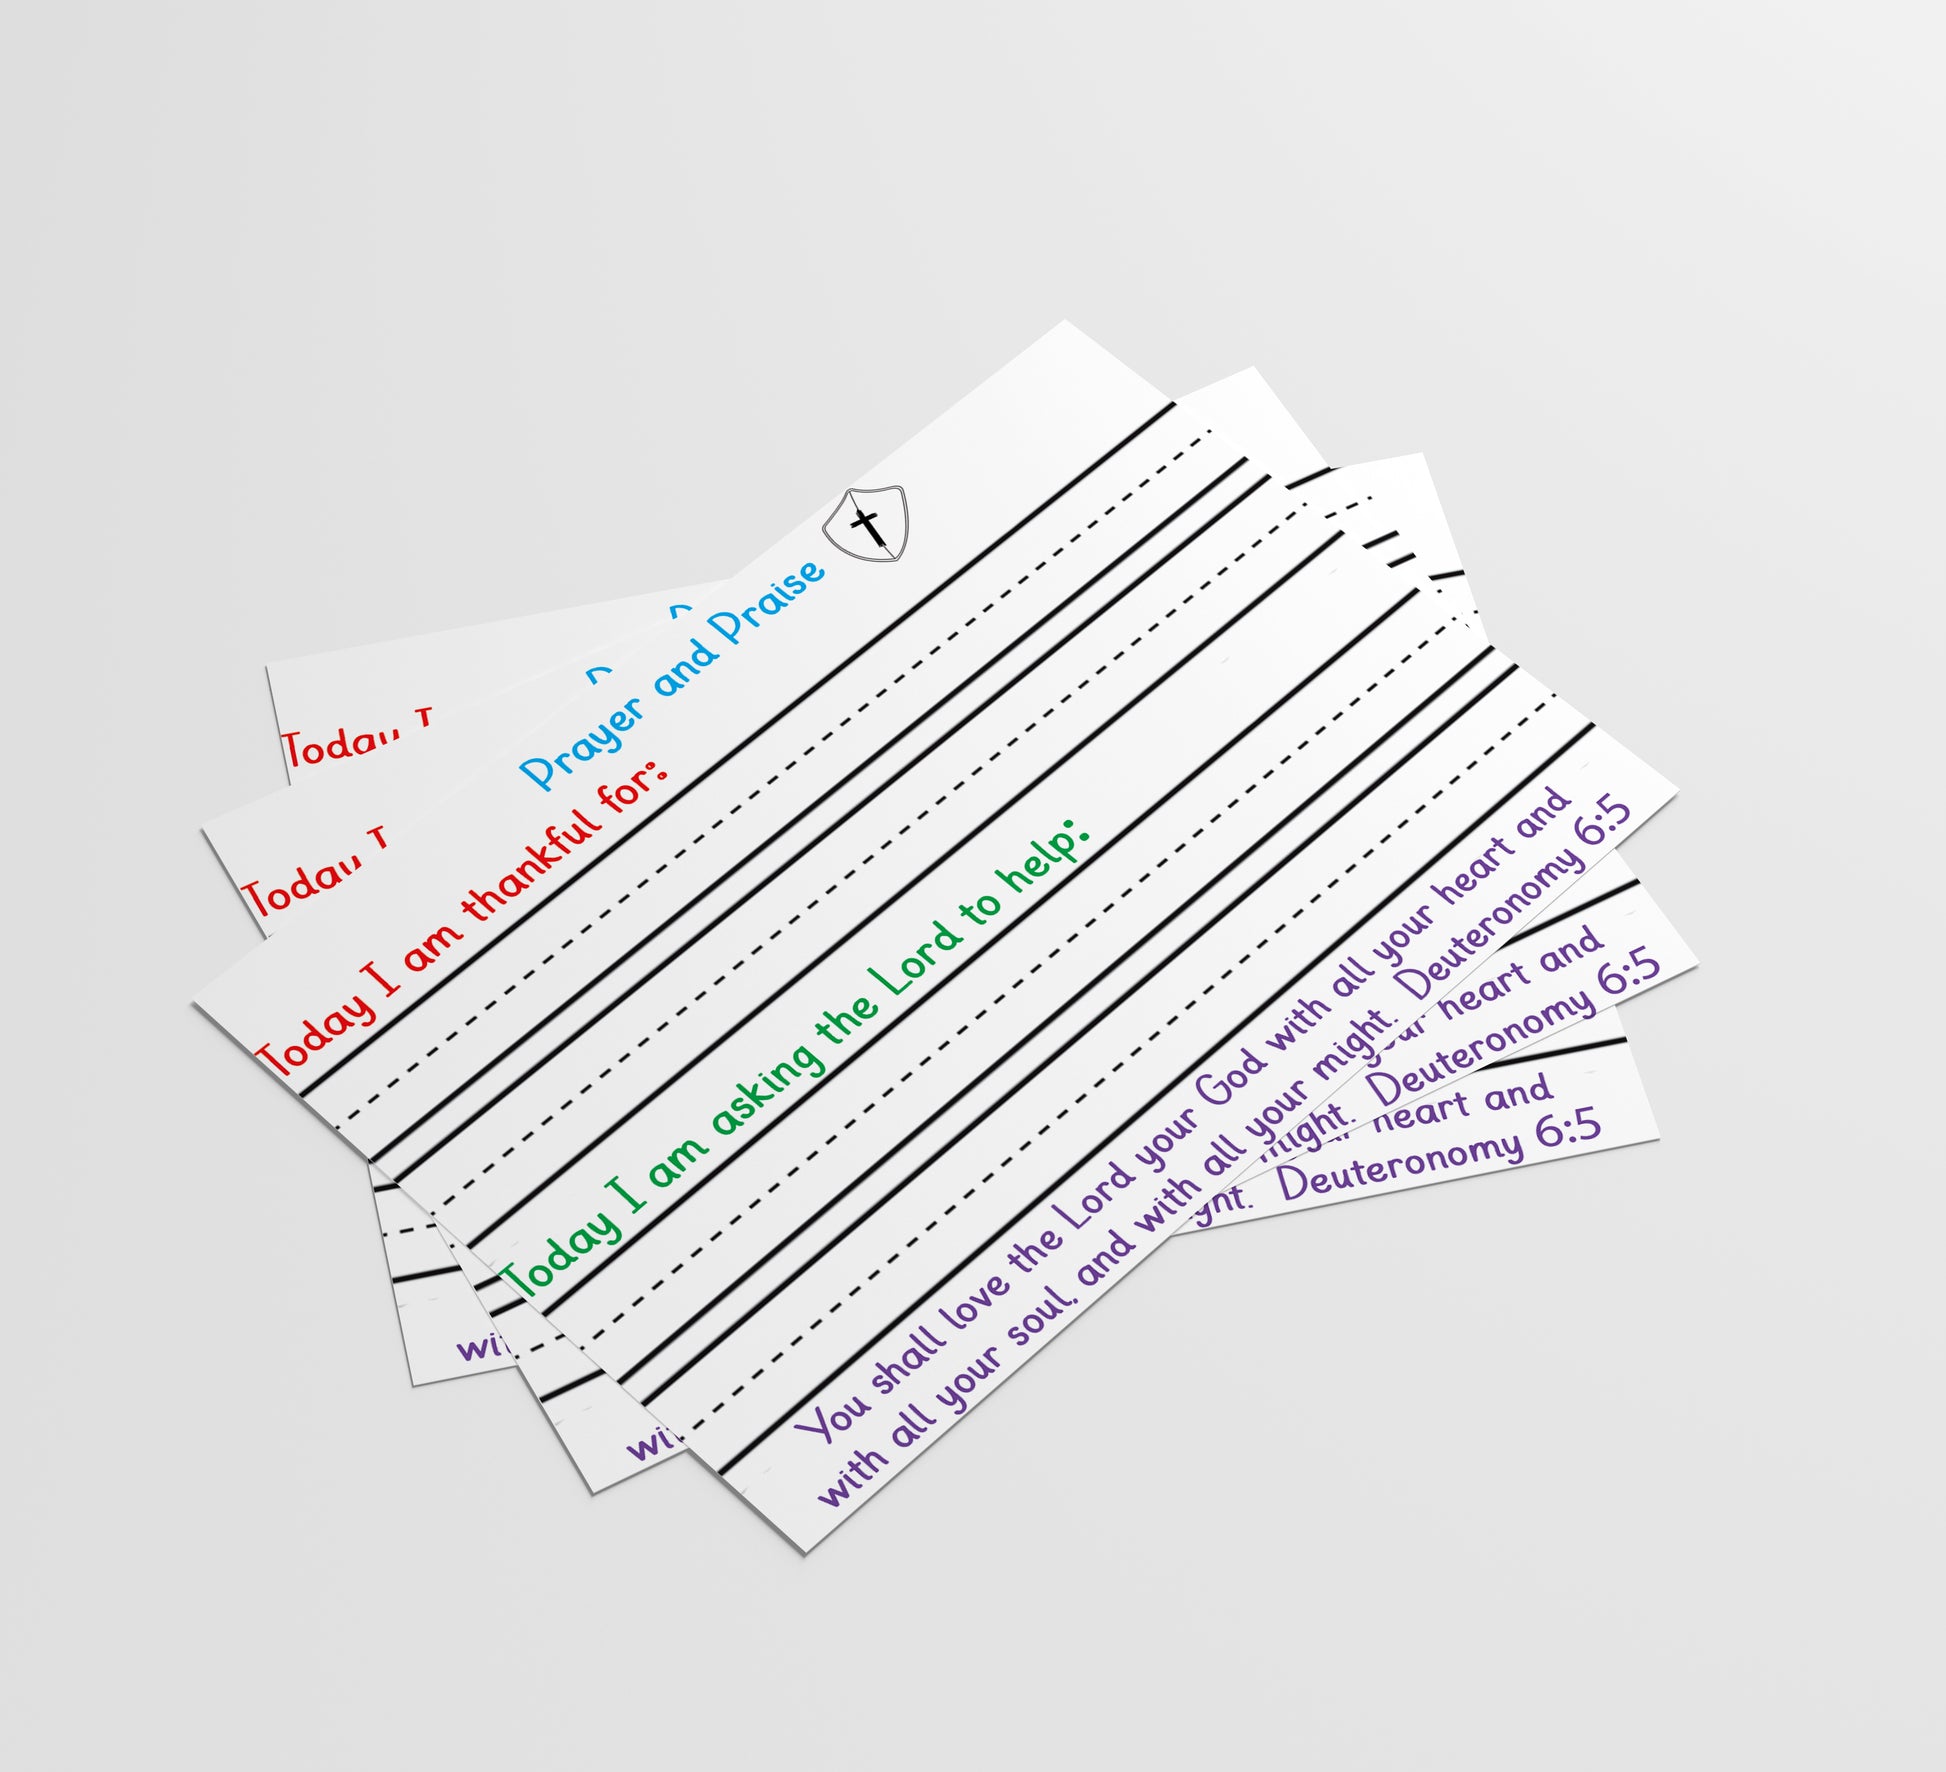 Prayer and Praise
Today I am thankful for:
Today I am asking the Lord to help:
You shall love the Lord your God with all your heart and
with all your soul, and with all your might. Deuteronomy 6:5
heart and
Deuteronomy 6:5
heart and
Deuteronomy 6:5